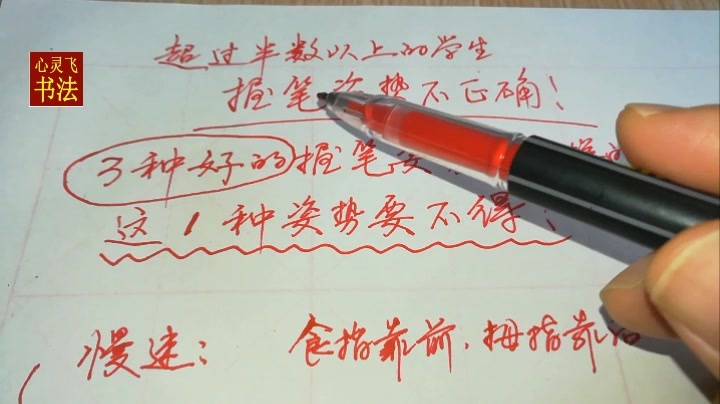 心灵飞
书法
超过半数以上的学生
握笔姿势不正确！
3种好的握笔姿
这1种姿势要不得！
慢速： 食指靠前，拇指靠后